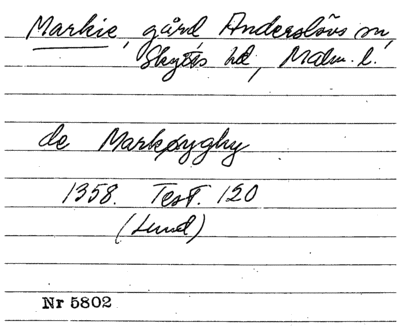 Markie, gård Anderslövs sn,
Skytts hd, Malm. l.
de Markøyghy
1358. Test. 120
(Lund)
Nr 5802